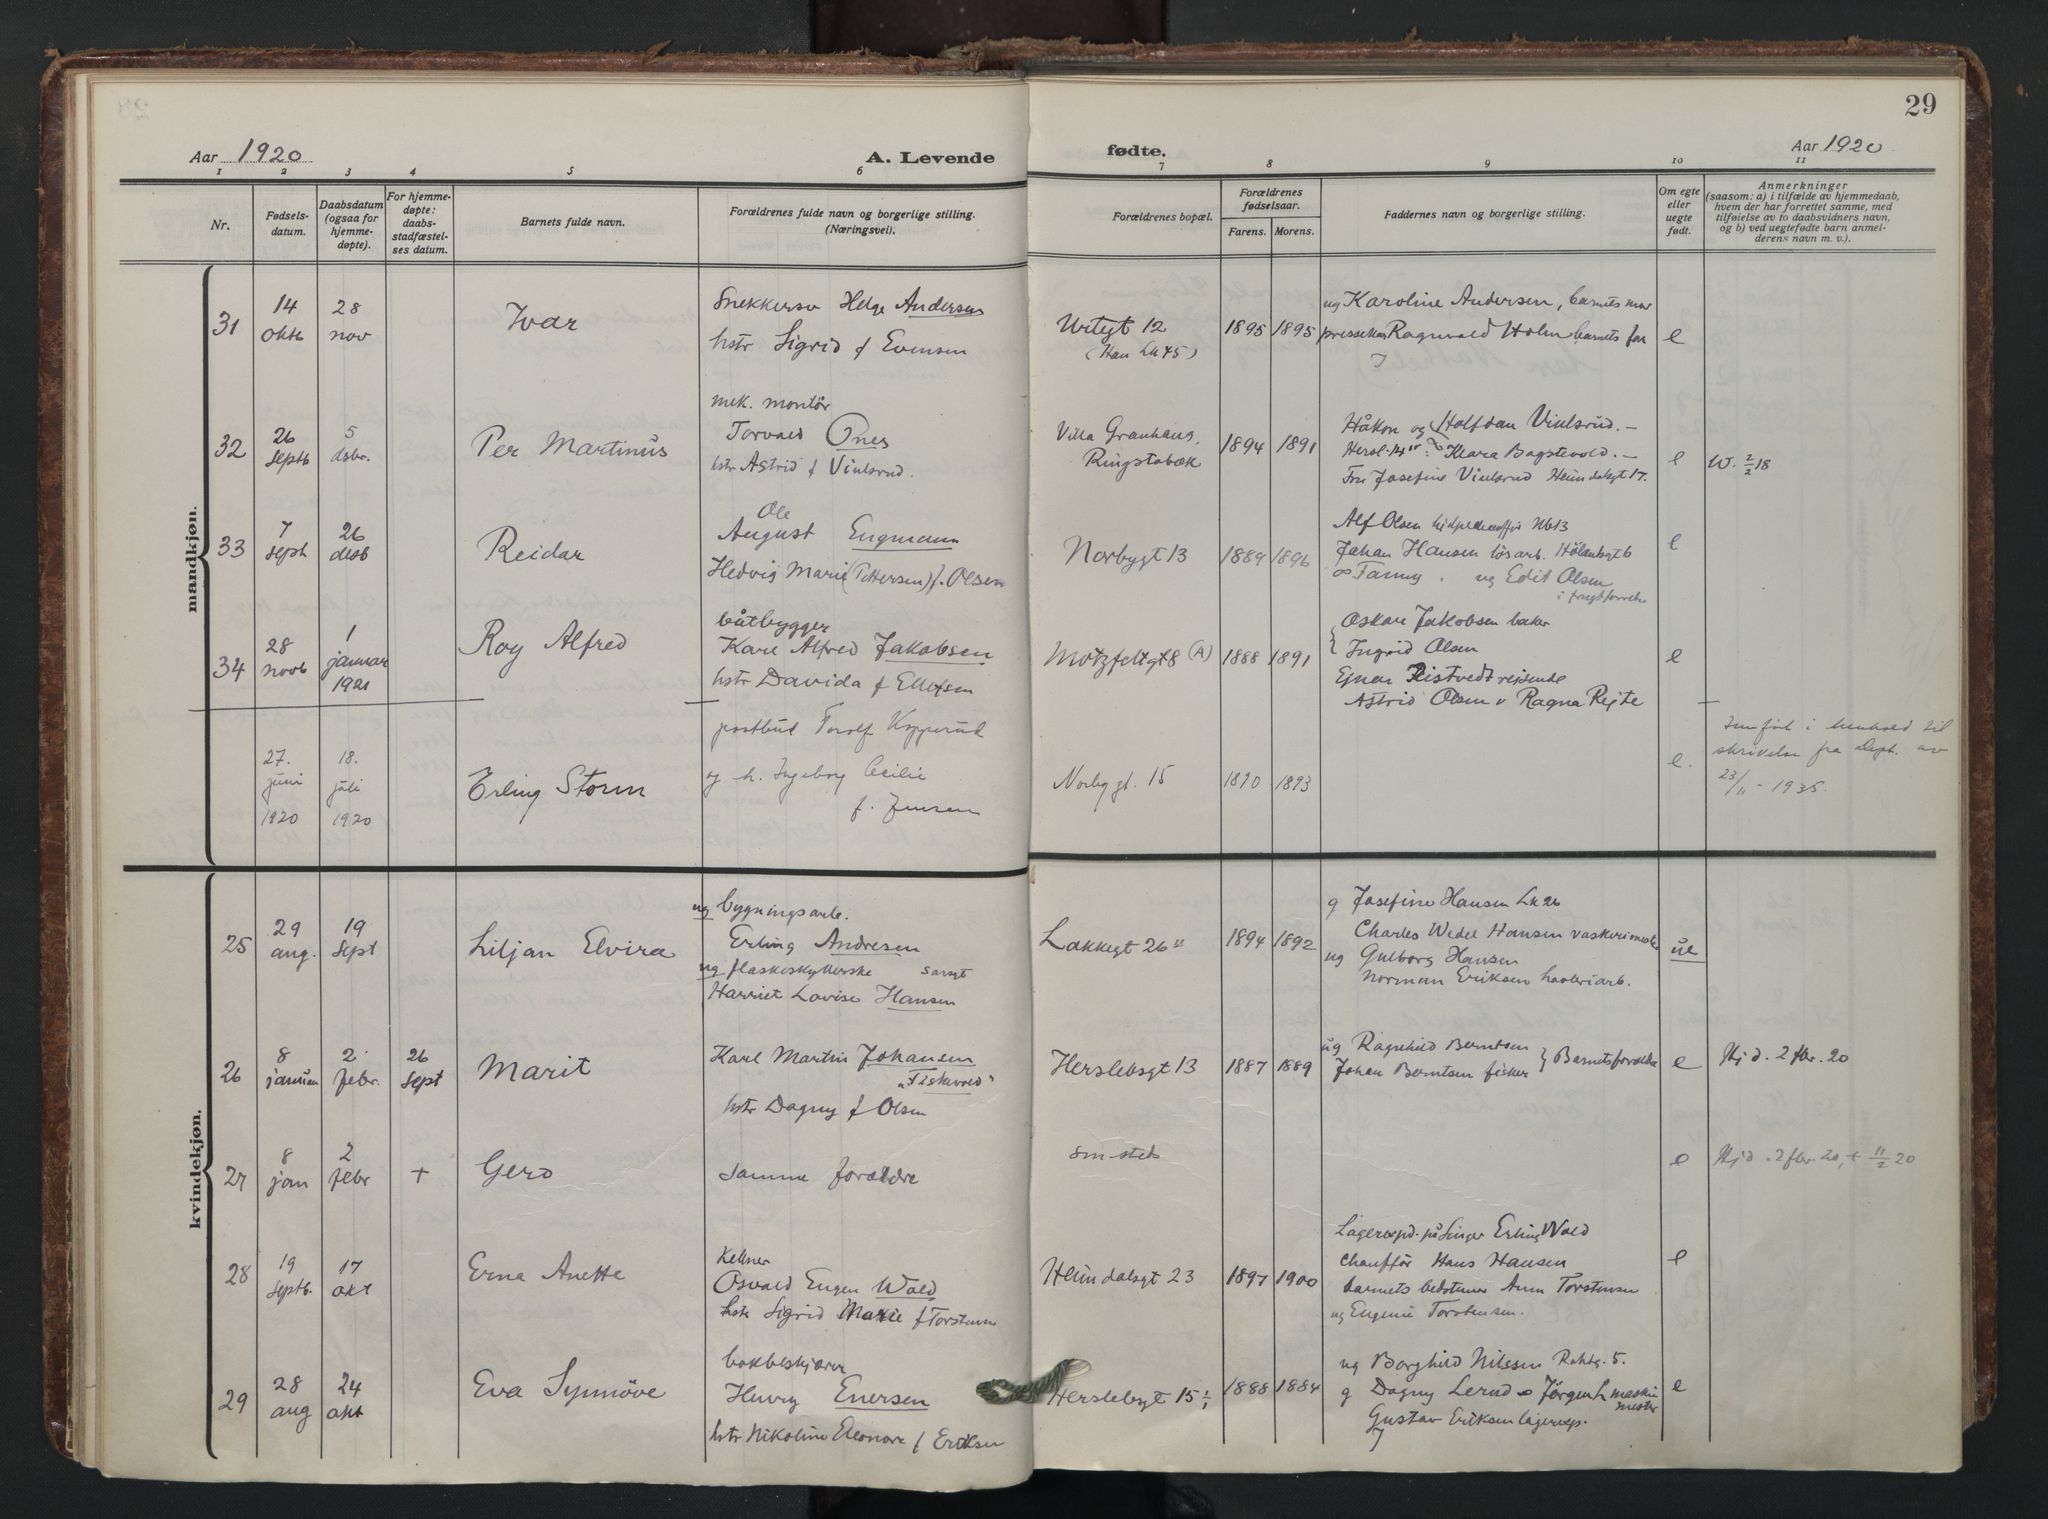 29
Aar 1920
A. Levende fødte.
Aar 1920
1 2 3 4 5 6 7 8 9 10 11
Nr.
Fødsels-
datum.
Daabsdatum
(ogsaa for
hjemme-
døpte).
For hjemme-
døpte:
daabs-
stadfæstel-
ses datum.
Barnets fulde navn.
Forældrenes fulde navn og borgerlige stilling.
(Næringsvei).
Forældrenes bopæl.
Forældrenes
fødselsaar.
Farens. Morens.
Faddernes navn og borgerlige stilling.
Om egte
eller
uegte
født.
Anmerkninger
(saasom: a) i tilfælde av hjemmedaab,
hvem der har forrettet samme, med
tilføielse av to daabsvidners navn,
og b) ved uegtefødte barn anmel-
derens navn m. v.).
mandkjøn.
31
14
oktb
28
nov
Ivar
Snekkersv Helge Andersen
hstr Sigrid f Evensen
Urtegt 12
(Han Lk 45)
1895 1895
ug Karoline Andersen, barnets mor
Ragnvald Holm barnets far
e
32
26
septb
5
dsbr.
Per Martinus
mek. montör
Torvald Ones
hstr Astrid f Viulsrud.
Villa Granhaug,
Ringstabæk
1894 1891
Håkon og Halfdan Viulsrud. –
Klara Bagstevold. –
Fru Josefine Viulsrud Heimdalsgt 17.
e
W. 2/2 18
33
7
sept
26
desb
Reidar
Ole
August Engmann
Hedvig Marie (Pettersen) f. Olsen
Norbygt 13
1889 1896
Alf Olsen Nb13
Johan Hansen løsarb. Hölandsgt 6
∞ Fanny . ug Edit Olsen
i frugtforretn
e
34
28
novb
1
januar
1921
Roy Alfred
båtbygger
Karl Alfred Jakobsen
hstr Davida f Ellefsen
Motzfeltgt 8 (A)
1888 1891
Oskar Jakobsen baker
Ingrid Olsen
Ejnar Ristvedt rejsende
Astrid Olsen v Ragna Rejte
e
27.
juni
1920
18.
juli
1920
Erling Storm
postbud Torolf Kopperud
og h. Ingeborg Cecilie
f. Jensen
Norbygt. 15
1890 1893
e.
Innført i henhold til
skrivelse fra Dept. av
23/11 - 1935.
kvindekjøn.
25
29
aug.
19
sept
Liljan Elvira
ug bygningsarb.
Erling Andresen
ug flaskeskyllerske
Harriet Lovise Hansen
Lakkegt 26
1894 1892
g Josefine Hansen Lk 26
Charles Wedel Hansen vaskerimester
ug Gulborg Hansen
Norman Eriksen
ue
26
8
januar
2
febr.
26
sept
Marit
Karl Martin Johansen
"Fiskvold"
hstr Dagny f Olsen
Herslebsgt 13
1887 1889
ug Ragnhild Berntsen
Johan Berntsen fisker } Barnets forældre
e
Hjd. 2 fbr. 20
27
8
jan
2
febr
+
Gerd
samme forældre
smsteds
e
Hjd. 2 fbr. 20, + 11/2 20
28
19
septb.
17
okt
Erna Anette
Kellner
Osvald Eugen Wold
hstr Sigrid Marie f Torstensen
Heimdalsgt 23
1897 1900
Lagerexpd. på Singer Erling Wold
chauffør Hans Hansen
barnets bedstemor Anna Torstensen
ug Eugenie Torstensen.
e
29
28
aug
24
okt
Eva Synnöve
bokbeskjærer
Henry Enersen
hstr Nikoline Eleonore f Eriksen
Herslebsgt 15
1888 1884
ug Borghild Nilssen 5.
g Dagny Lerud ∞ Jörgen L maskin
mester
Gustav Eriksen lagerexp.
e